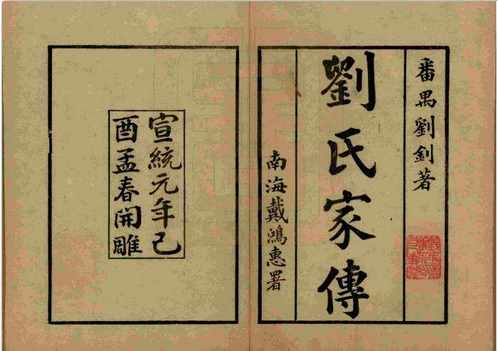 番禺劉釗著
劉氏家傳
南海戴鴻惠署
宣統元年己
酉孟春開雕